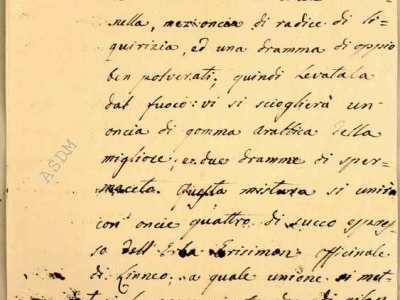 nella, mezz'oncia di radice di li
quirizia, ed una dramma di oppio
ben polverati, quindi levatala
dal fuoco: vi si scioglierà un
oncia di gomma Arabbica della
migliore, e due dramme di sper
maceta. Questa mistura si unirà
con oncie quattro di succo espres
so dell'Erba Erisimon officinale
di Linneo. a quale unione si met
ASDM